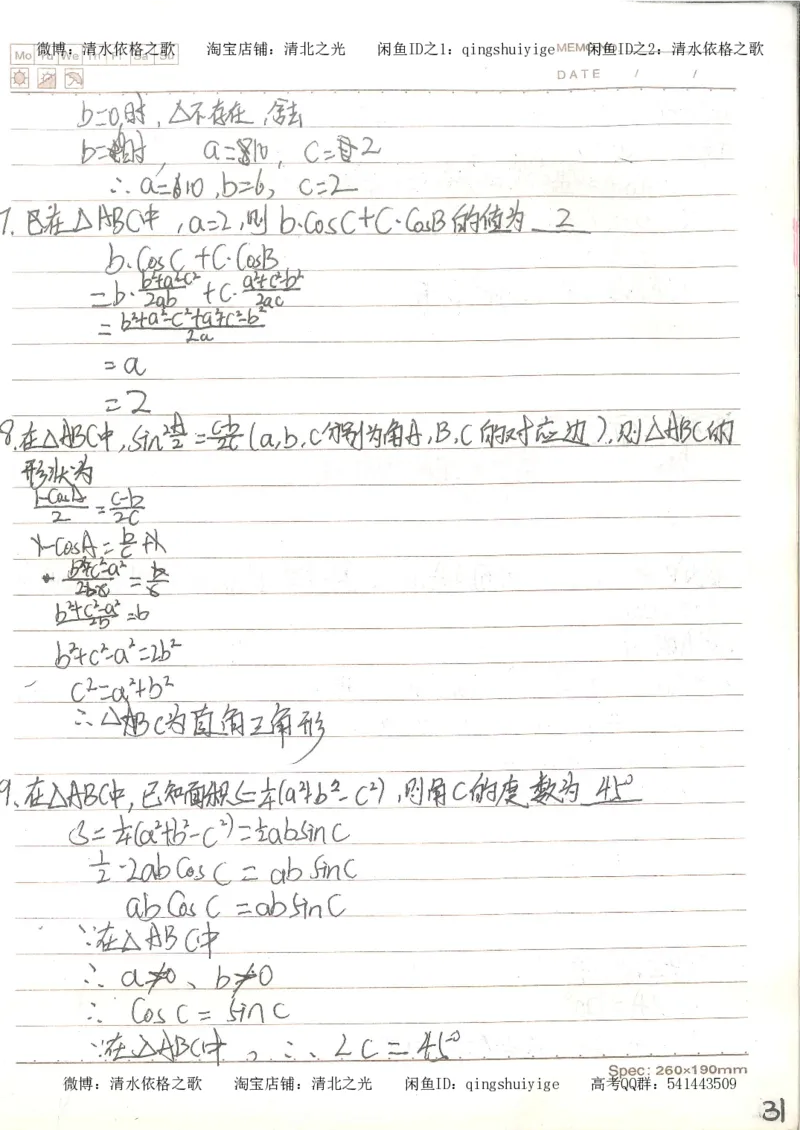 微博：清水依格之歌 淘宝店铺：清北之光 闲鱼ID之1：qingshuiyige 闲鱼ID之2：清水依格之歌
Mo Tu We Th Fr Sa Su MEMO
DATE / /
b=0时，△不存在，舍去
b=时，a=10，c=2
∴a=10，b=6，c=2
7.已在△ABC中，a=2，则b·CosC+C·CosB的值为 2
b·CosC+C·CosB
=b·(b²+a²-c²)/2ab+c·(a²+c²-b²)/2ac
=(b²+a²-c²+a²+c²-b²)/2a
=a
=2
8.在△ABC中，sin²A/2=(c-b)/2c（a,b,c分别为角A,B,C的对应边），则△ABC的
形状为
(1-CosA)/2=(c-b)/2c
1-cosA=b/c+1
(b²+c²-a²)/2bc=b/c
(b²+c²-a²)/2b=b
b²+c²-a²=2b²
c²=a²+b²
∴△ABC为直角三角形
9、在△ABC中，已知面积S=1/4(a²+b²-c²)，则角C的度数为 45°
S=1/4(a²+b²-c²)=1/2absinC
1/2·2abCosC=absinC
abCosC=absinC
∵在△ABC中
∴a≠0、b≠0
∴CosC=sinC
∵在△ABC中，∴∠C=45°
Spec: 260×190mm
微博：清水依格之歌 淘宝店铺：清北之光 闲鱼ID：qingshuiyige 高考QQ群：541443509
31